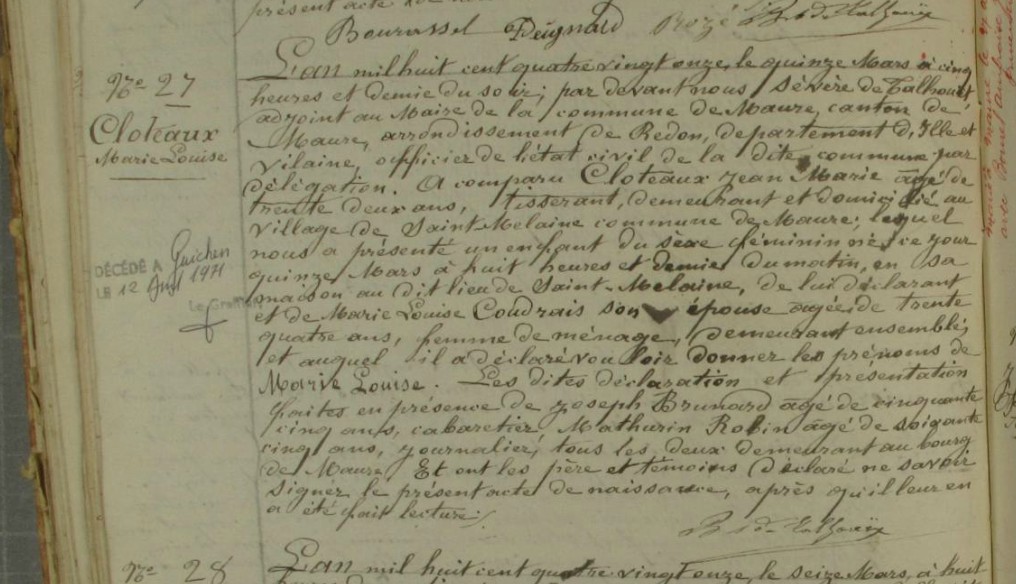 présent acte
Bourassel Deignaud Bozé
No 27
Cloteaux
Marie Louise
DÉCÉDÉ A Guichen
LE 12 1971
L'an mil huit cent quatre vingt onze, le quinze Mars à cinq
heures et demie du soir; par devant nous Sévère de Talhouët
adjoint au Maire de la commune de Maure, canton de
Maure, arrondissement de Redon, département d'Ille et
Vilaine, officier de l'état civil de la dite commune par
délégation. A comparu Cloteaux Jean Marie âgé de
trente deux ans, tisserant, demeurant et domicilié au
village de Saint Melaine commune de Maure; lequel
nous a présenté un enfant du sèxe féminin né ce jour
quinze Mars à huit heures et demie du matin, en sa
maison au dit lieu de Saint-Melaine, de lui déclarant
et de Marie Louise Coudrais son épouse agée de trente
quatre ans, femme de ménage, demeurant ensemble,
et auquel il a déclaré vouloir donner les prénoms de
Marie Louise. Les dites déclaration et présentation
faites en présence de Joseph Brunard âgé de cinquante
cinq ans, cabaretier, Mathurin Robin âgé de soixante
cinq ans, journalier, tous les deux demeurant au bourg
de Maure. Et ont les père et témoins déclaré ne savoir
signer le présent acte de naissance, après qu'il leur en
a été fait lecture.
No 28
L'an mil huit cent quatre vingt onze, le seize Mars, à huit